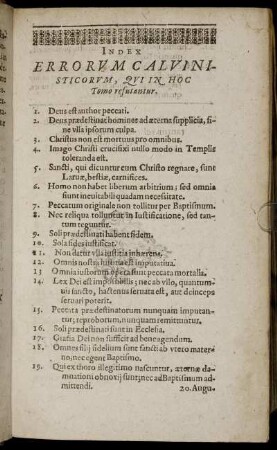 INDEX
ERRORVM CALVINI-
STICORVM, QVI IN HOC
Tomo refutantur.
1. Deus est author peccati.
2. Deus prædestinat homines ad æterna supplicia, si-
ne vlla ipsorum culpa.
3. Christus non est mortuus pro omnibus.
4. Imago Christi crucifixi nullo modo in Templis
toleranda est.
5. Sancti, qui dicuntur cum Christo regnare, sunt
Laruæ, bestiæ, carnifices.
6. Homo non habet liberum arbitrium; sed omnia
fiunt ineuitabili quadam necessitate.
7. Peccatum originale non tollitur per Baptismum.
8. Nec reliqua tolluntur in Iustificatione, sed tan-
tum teguntur.
9. Soli prædestinati habent fidem.
10. Sola fides iustificat.
11. Non datur vlla iustitia inhærens.
12. Omnis nostra iustitia est imputatiua.
13. Omnia iustorum opera sunt peccata mortalia.
14. Lex Dei est impossibilis; nec ab vllo, quantum-
uis sancto, hactenus seruata est, aut deinceps
seruari poterit.
15. Peccata prædestinatorum nunquam imputan-
tur; reproborum, nunquam remittuntur.
16. Soli prædestinati sunt in Ecclesia.
17. Gratia Dei non sufficit ad bene agendum.
18. Omnes filij fidelium sunt sancti ab vtero mater-
no; nec egent Baptismo.
19. Qui ex thoro illegitimo nascuntur, æternæ da-
mnationi obnoxij sunt; nec ad Baptismum ad-
mittendi.
20. Augu-